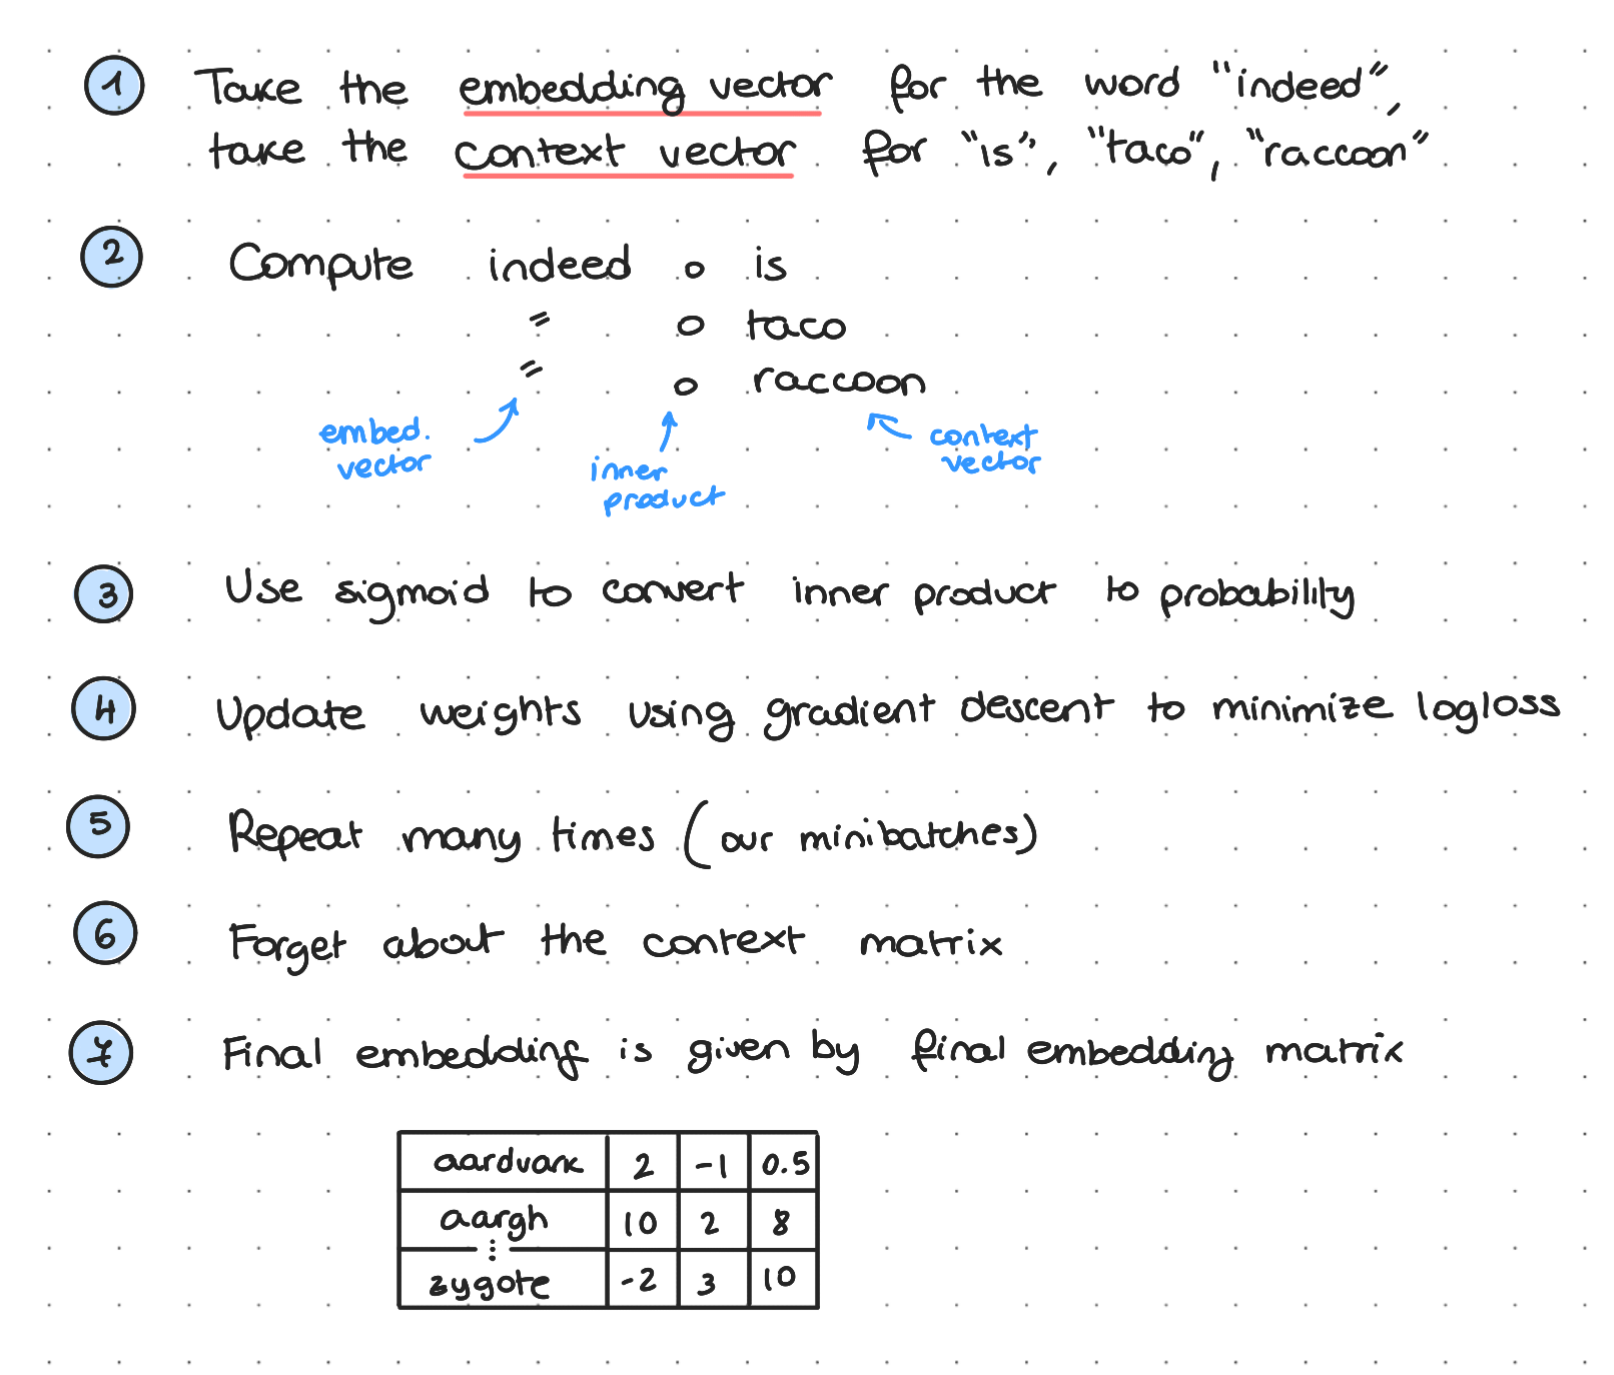 1 Take the embedding vector for the word "indeed",
take the context vector for "is", "taco", "raccoon"
2 Compute indeed o is
= o taco
= o raccoon
embed. vector
inner product
context vector
3 Use sigmoid to convert inner product to probability
4 Update weights using gradient descent to minimize logloss
5 Repeat many times (our minibatches)
6 Forget about the context matrix
7 Final embedding is given by final embedding matrix
aardvark 2 -1 0.5
aargh 10 2 8
⋮
zygote -2 3 10